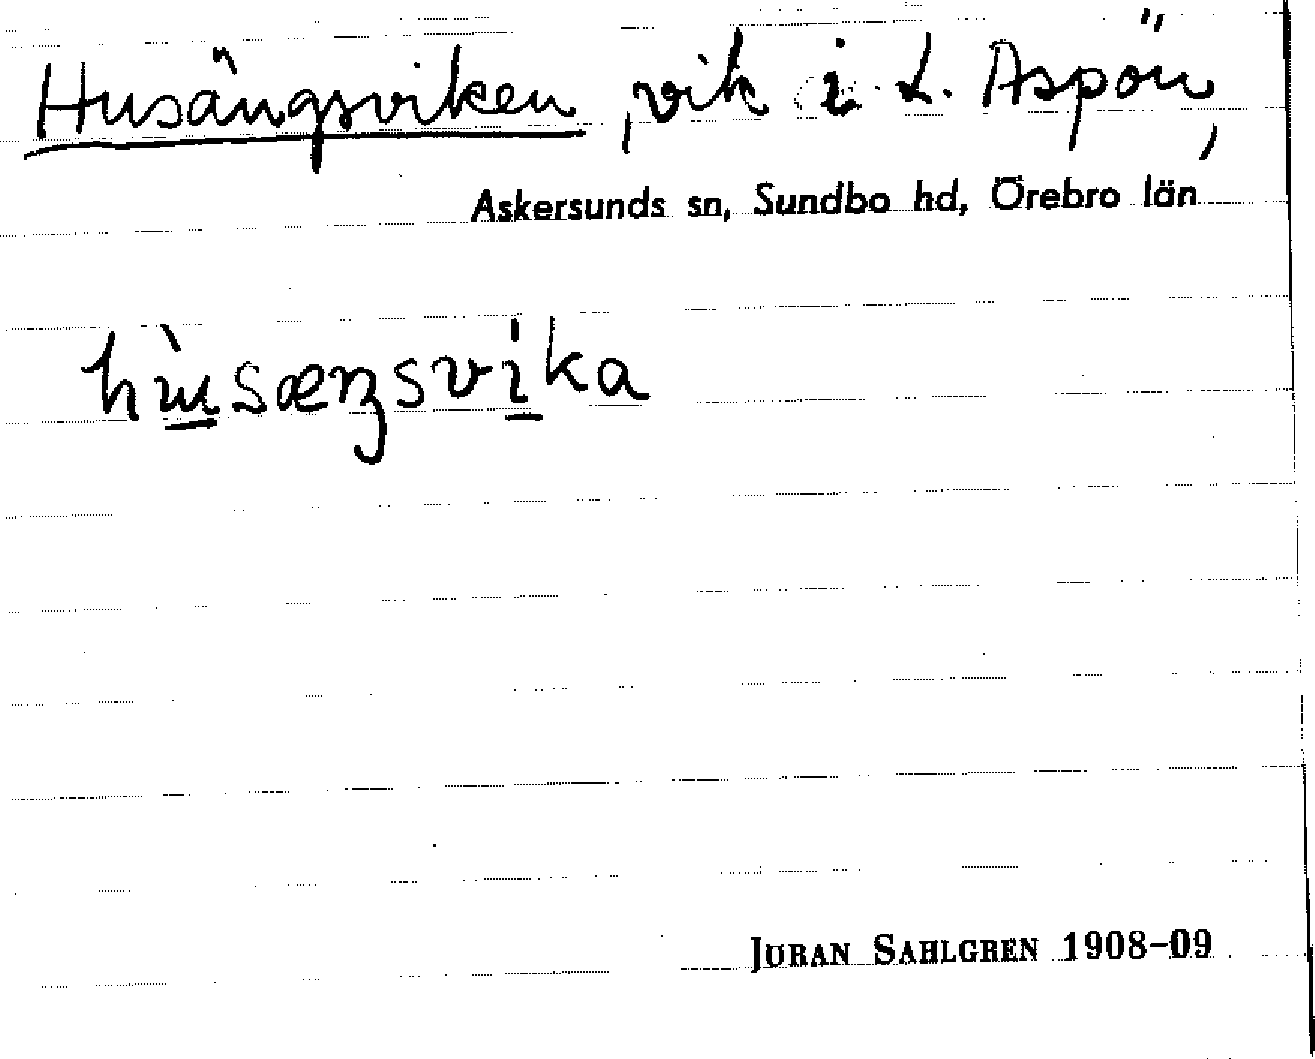 Husängsviken, vik i L. Aspön,
Askersunds sn, Sundbo hd, Örebro län
hùsæŋsvika
JÖRAN SAHLGREN 1908–09